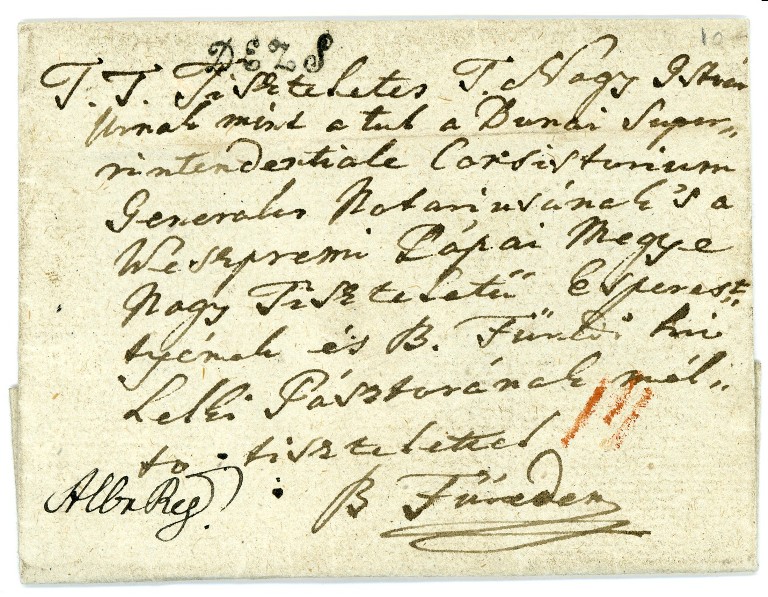 10
DEZS
T. T. Tiszteletes T. Nagy István
Urnak mint a tul a Dunai Super„
rintendentiale Consistorium
Generalis Notariusának 's a
Weszpremi Pápai Megye
Nagy Tiszteletű Esperest„
tyének és B. Füredi hiv
Lelki Pásztorának mél„
to tisztelettel
Alba Reg.
B Füreden